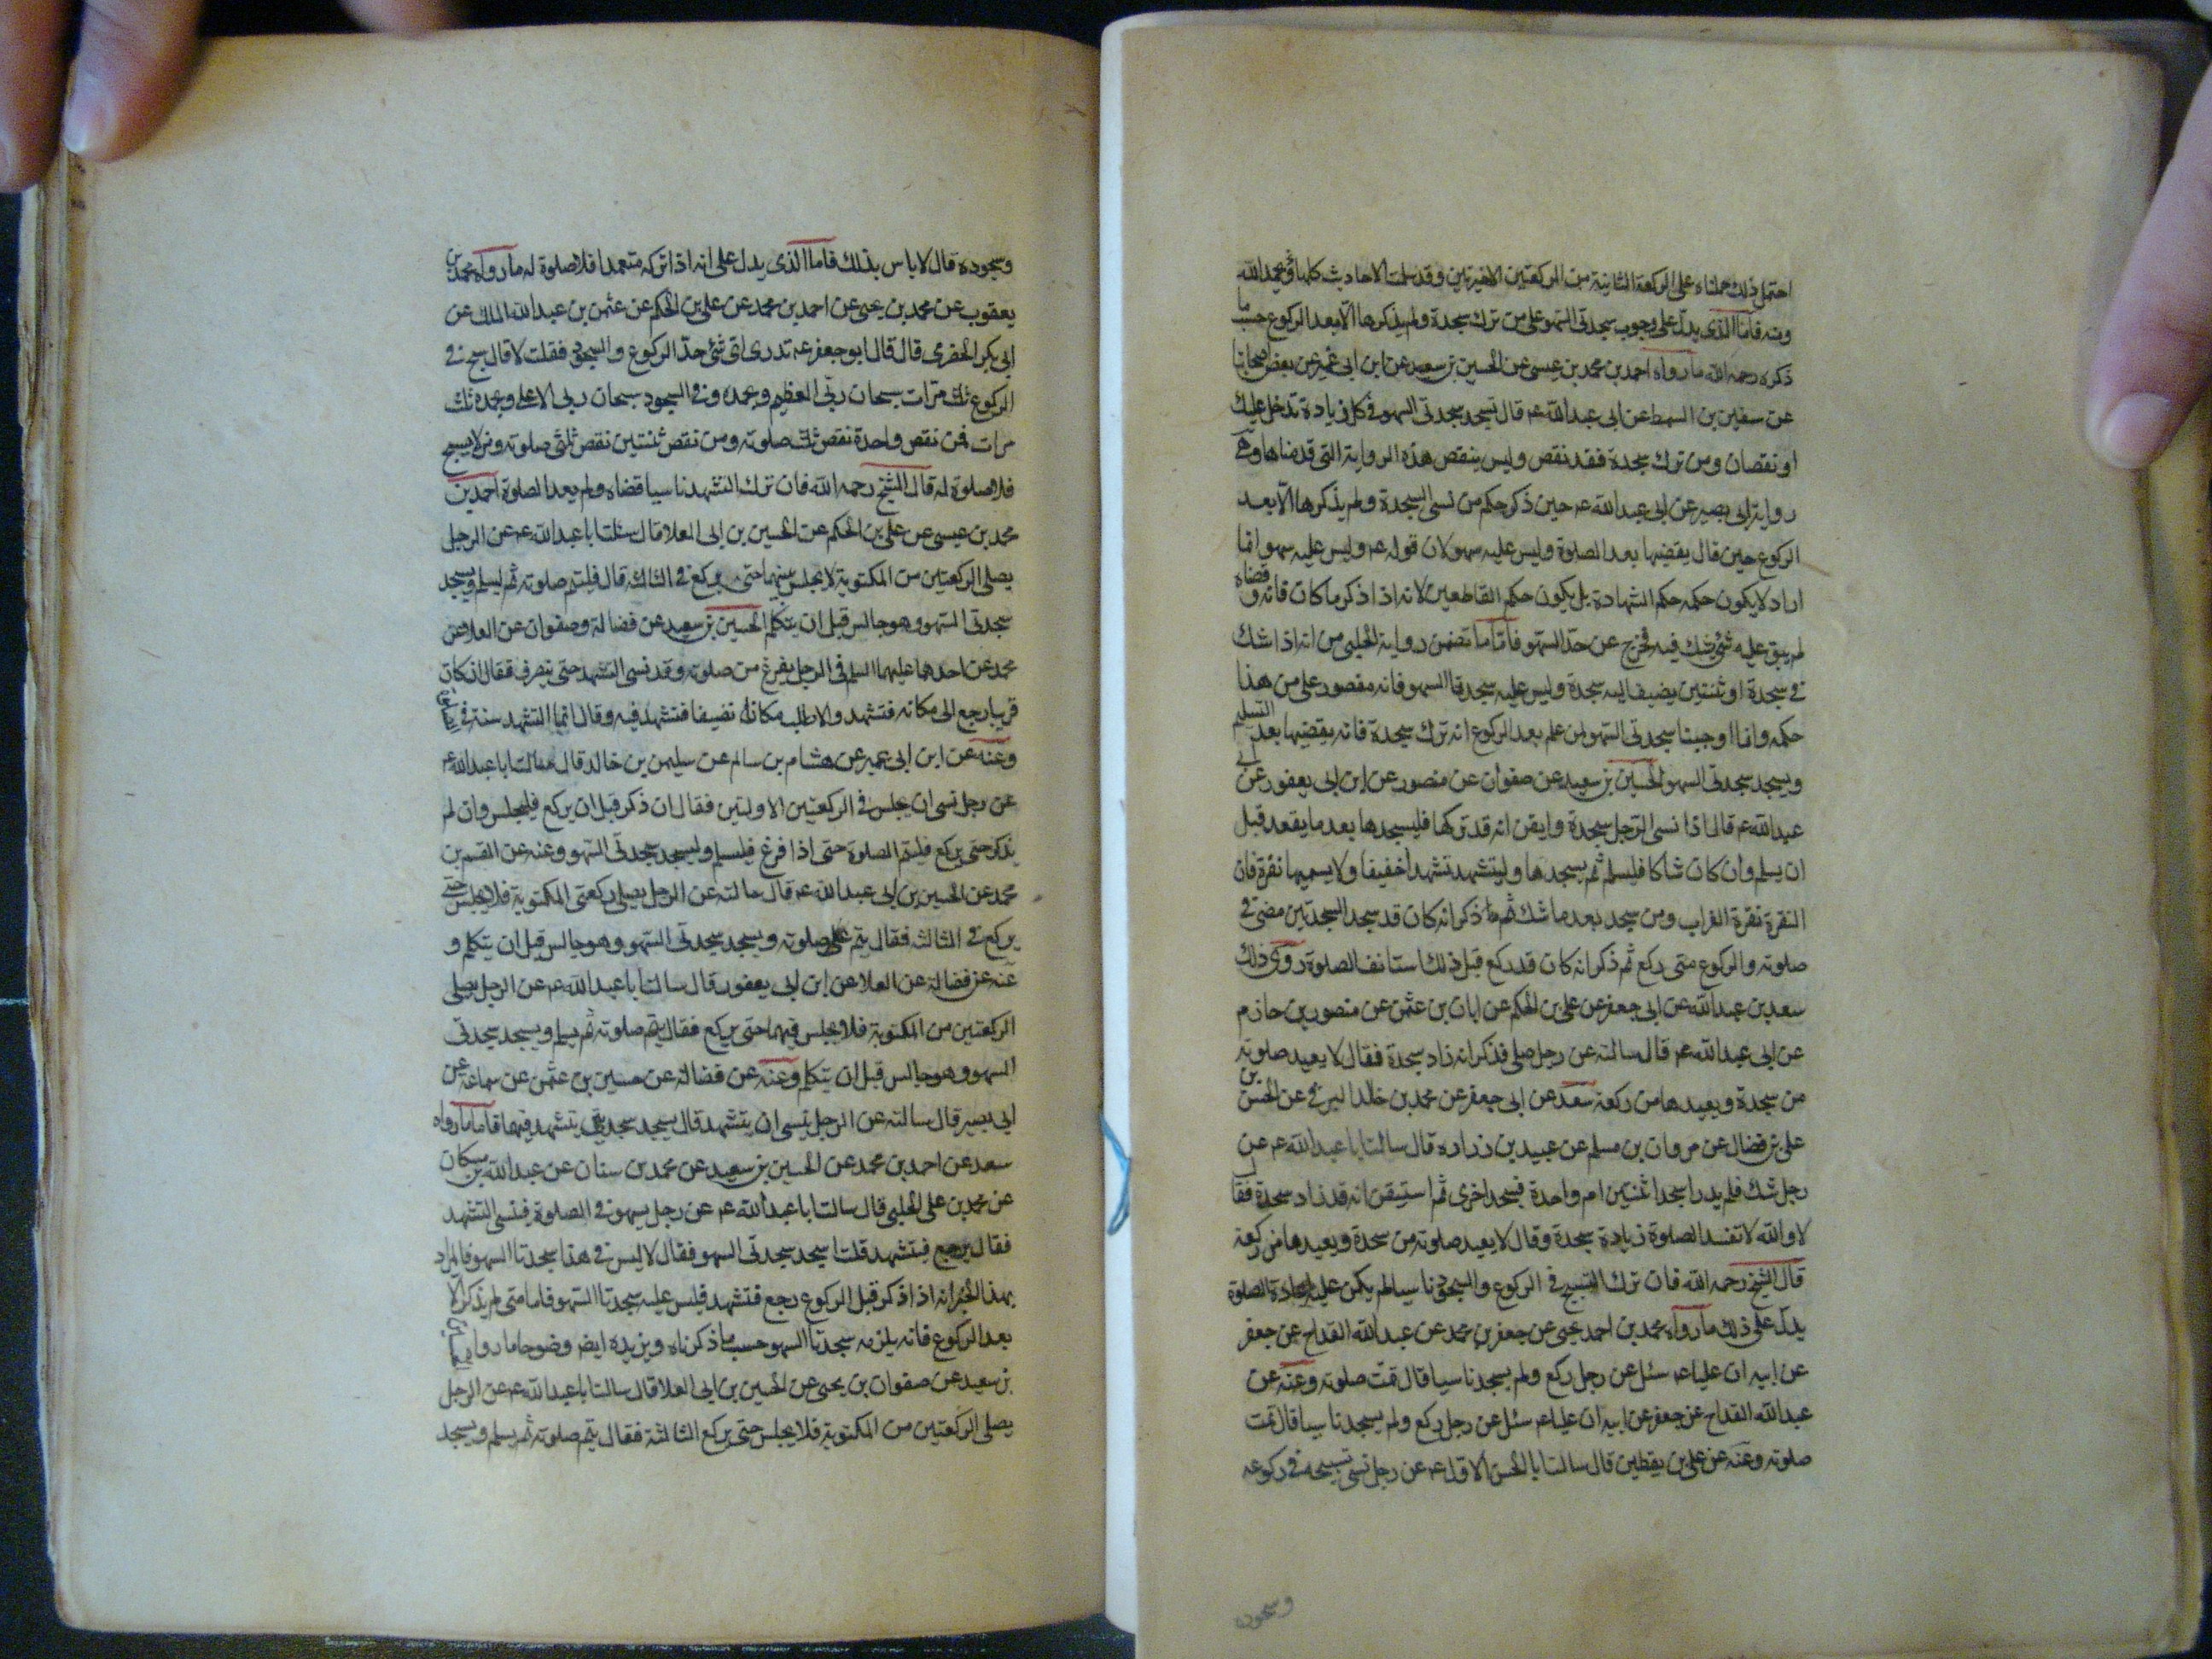 احتمل ذلك حملناه على الركعة الثانية من الركعتين الاخيرتين وقد سلمت الاحاديث كلها بحمد الله
ومنه فاما الذى يدل على وجوب سجدتى السهو على من ترك سجدة ولم يذكرها الا بعد الركوع حسب ما
ذكره رحمه الله ما رواه احمد بن محمد بن عيسى عن الحسين بن سعيد عن ابن ابى عمير عن بعض اصحابنا
عن سفين بن السمط عن ابى عبد الله عم قال تسجد سجدتى السهو فى كل زيادة تدخل عليك
او نقصان ومن ترك سجدة فقد نقص وليس ينقص هذه الرواية التى قدمناها وهى
رواية ابى بصير عن ابى عبد الله عم حين ذكر حكم من نسى السجدة ولم يذكرها الا بعد
الركوع حين قال يقضيها بعد الصلوة وليس عليه سهو لان قوله عم وليس عليه سهو انما
اراد لا يكون حكمه حكم الشهادة بل يكون حكم القاطعين لانه اذا ذكر ما كان فاته وقضاه
لم يبق عليه شئ يشك فيه فخرج عن حد السهو فاما ما تضمن رواية الحلبى من انه اذا شك
فى سجدة او ثنتين يضيف اليه سجدة وليس عليه سجدتا السهو فانه مقصور على من هذا
حكمه وانما اوجبنا سجدتى السهو لمن علم بعد الركوع انه ترك سجدة فانه يقضيها بعد التسليم
ويسجد سجدتى السهو الحسين بن سعيد عن صفوان عن منصور عن ابن ابى يعفور عن ابى
عبد الله عم قال اذا نسى الرجل سجدة وايقن انه قد تركها فليسجدها بعد ما يقعد قبل
ان يسلم وان كان شاكا فليسلم ثم يسجدها وليتشهد تشهدا خفيفا ولا يسميها نقرة فان
النقرة نقرة الغراب ومن سجد بعد ما شك ثم ذكر انه كان قد سجد السجدتين مضى فى
صلوته والركوع متى ركع ثم ذكر انه كان قد ركع قبل ذلك استانف الصلوة روى ذلك
سعد بن عبد الله عن ابى جعفر عن على بن الحكم عن ابان بن عثمن عن منصور بن حازم
عن ابى عبد الله عم قال سالته عن رجل صلى فذكر انه زاد سجدة فقال لا يعيد صلوته
من سجدة ويعيدها من ركعة سعد عن ابى جعفر عن محمد بن خالد البرقى عن الحسن بن
على بن فضال عن مروان بن مسلم عن عبيد بن زراره قال سالت ابا عبد الله عم عن
رجل شك فلم يدر اسجد اثنتين ام واحدة فسجد اخرى ثم استيقن انه قد زاد سجدة فقال
لا والله لا تفسد الصلوة زيادة سجدة وقال لا يعيد صلوته من سجدة ويعيدها من ركعة
قال الشيخ رحمه الله فان ترك التسبيح فى الركوع والسجود ناسيا لم يكن عليه اعادة الصلوة
يدل على ذلك ما رواه محمد بن احمد يحيى عن جعفر بن محمد عن عبد الله القداح عن جعفر
عن ابيه ان عليا عم سئل عن رجل ركع ولم يسجد ناسيا قال تمت صلوته وعنه عن
عبد الله القداح عن جعفر عن ابيه ان عليا عم سئل عن رجل ركع ولم يسجد ناسيا قال تمت
صلوته وعنه عن على بن يقطين قال سالت ابا الحسن الاول عم عن رجل نسى تسبيحه فى ركوعه
وسجوده
وسجوده قال لا باس بذلك فاما الذى يدل على انه اذا تركه متعمدا فلا صلوة له ما رواه محمد بن
يعقوب عن محمد بن يحيى عن احمد بن محمد عن على بن الحكم عن عثمن بن عبد الملك عن
ابى بكر الحضرمى قال قال ابو جعفر عم تدرى اى شئ حد الركوع والسجود فقلت لا قال سبح فى
الركوع ثلث مرات سبحان ربى العظيم وبحمده وفى السجود سبحان ربى الاعلى وبحمده ثلث
مرات فمن نقص واحدة نقص ثلث صلوته ومن نقص ثنتين نقص ثلثى صلوته ومن لا يسبح
فلا صلوة له قال الشيخ رحمه الله فان ترك التشهد ناسيا قضاه ولم يعد الصلوة احمد بن
محمد بن عيسى عن على بن الحكم عن الحسين بن ابى العلا قال سئلت ابا عبد الله عم عن الرجل
يصلى الركعتين من المكتوبة لا يجلس بينهما حتى يركع فى الثالثة قال فليتم صلوته ثم ليسلم ويسجد
سجدتى السهو وهو جالس قبل ان يتكلم الحسين بن سعيد عن فضالة وصفوان عن العلا عن
محمد عن احدهما عليهما السلم فى الرجل يفرغ من صلوته وقد نسى التشهد حتى ينصرف فقال ان كان
قريبا رجع الى مكانه فتشهد والا طلب مكانا نضيفا فتشهد فيه وقال انما التشهد سنة فى
وعنه عن ابن ابى عمير عن هشام بن سالم عن سليمن بن خالد قال سالت ابا عبد الله عم
عن رجل نسى ان يجلس فى الركعتين الاولتين فقال ان ذكر قبل ان يركع فليجلس وان لم
يذكر حتى يركع فليتم الصلوة حتى اذا فرغ فليسلم وليسجد سجدتى السهو وعنه عن القسم بن
محمد عن الحسين بن ابى عبد الله عم قال سالته عن الرجل يصلى ركعتى المكتوبة فلا يجلس حتى
يركع فى الثالثة فقال يتم على صلوته ويسجد سجدتى السهو وهو جالس قبل ان يتكلم و
عنه عن فضالة عن العلا عن ابن ابى يعفور قال سالت ابا عبد الله عم عن الرجل يصلى
الركعتين من المكتوبة فلا يجلس فيهما حتى يركع فقال يتم صلوته ثم يسلم ويسجد سجدتى
السهو وهو جالس قبل ان يتكلم وعنه عن فضالة عن حسين بن عثمن عن سماعة عن
ابى بصير قال سالته عن الرجل ينسى ان يتشهد قال يسجد سجدتين يتشهد فيهما فاما ما رواه
سعد عن احمد بن محمد عن الحسين بن سعيد عن محمد بن سنان عن عبد الله بن مسكان
عن محمد بن على الحلبى قال سالت ابا عبد الله عم عن رجل يسهو فى الصلوة فينسى التشهد
فقال يرجع فيتشهد قلت ايسجد سجدتى السهو فقال لا ليس فى هذا سجدتا السهو فالمراد
بهذا الخبر انه اذا ذكر قبل الركوع رجع فتشهد فليس عليه سجدتا السهو فاما متى لم يذكر الا
بعد الركوع فانه يلزمه سجدتا السهو حسب ما ذكرناه ويزيده ايضا وضوحا ما رواه
بن سعيد عن صفوان بن يحيى عن الحسين بن ابى العلا قال سالت ابا عبد الله عم عن الرجل
يصلى الركعتين من المكتوبة فلا يجلس حتى يركع الثالثة فقال يتم صلوته ثم يسلم ويسجد